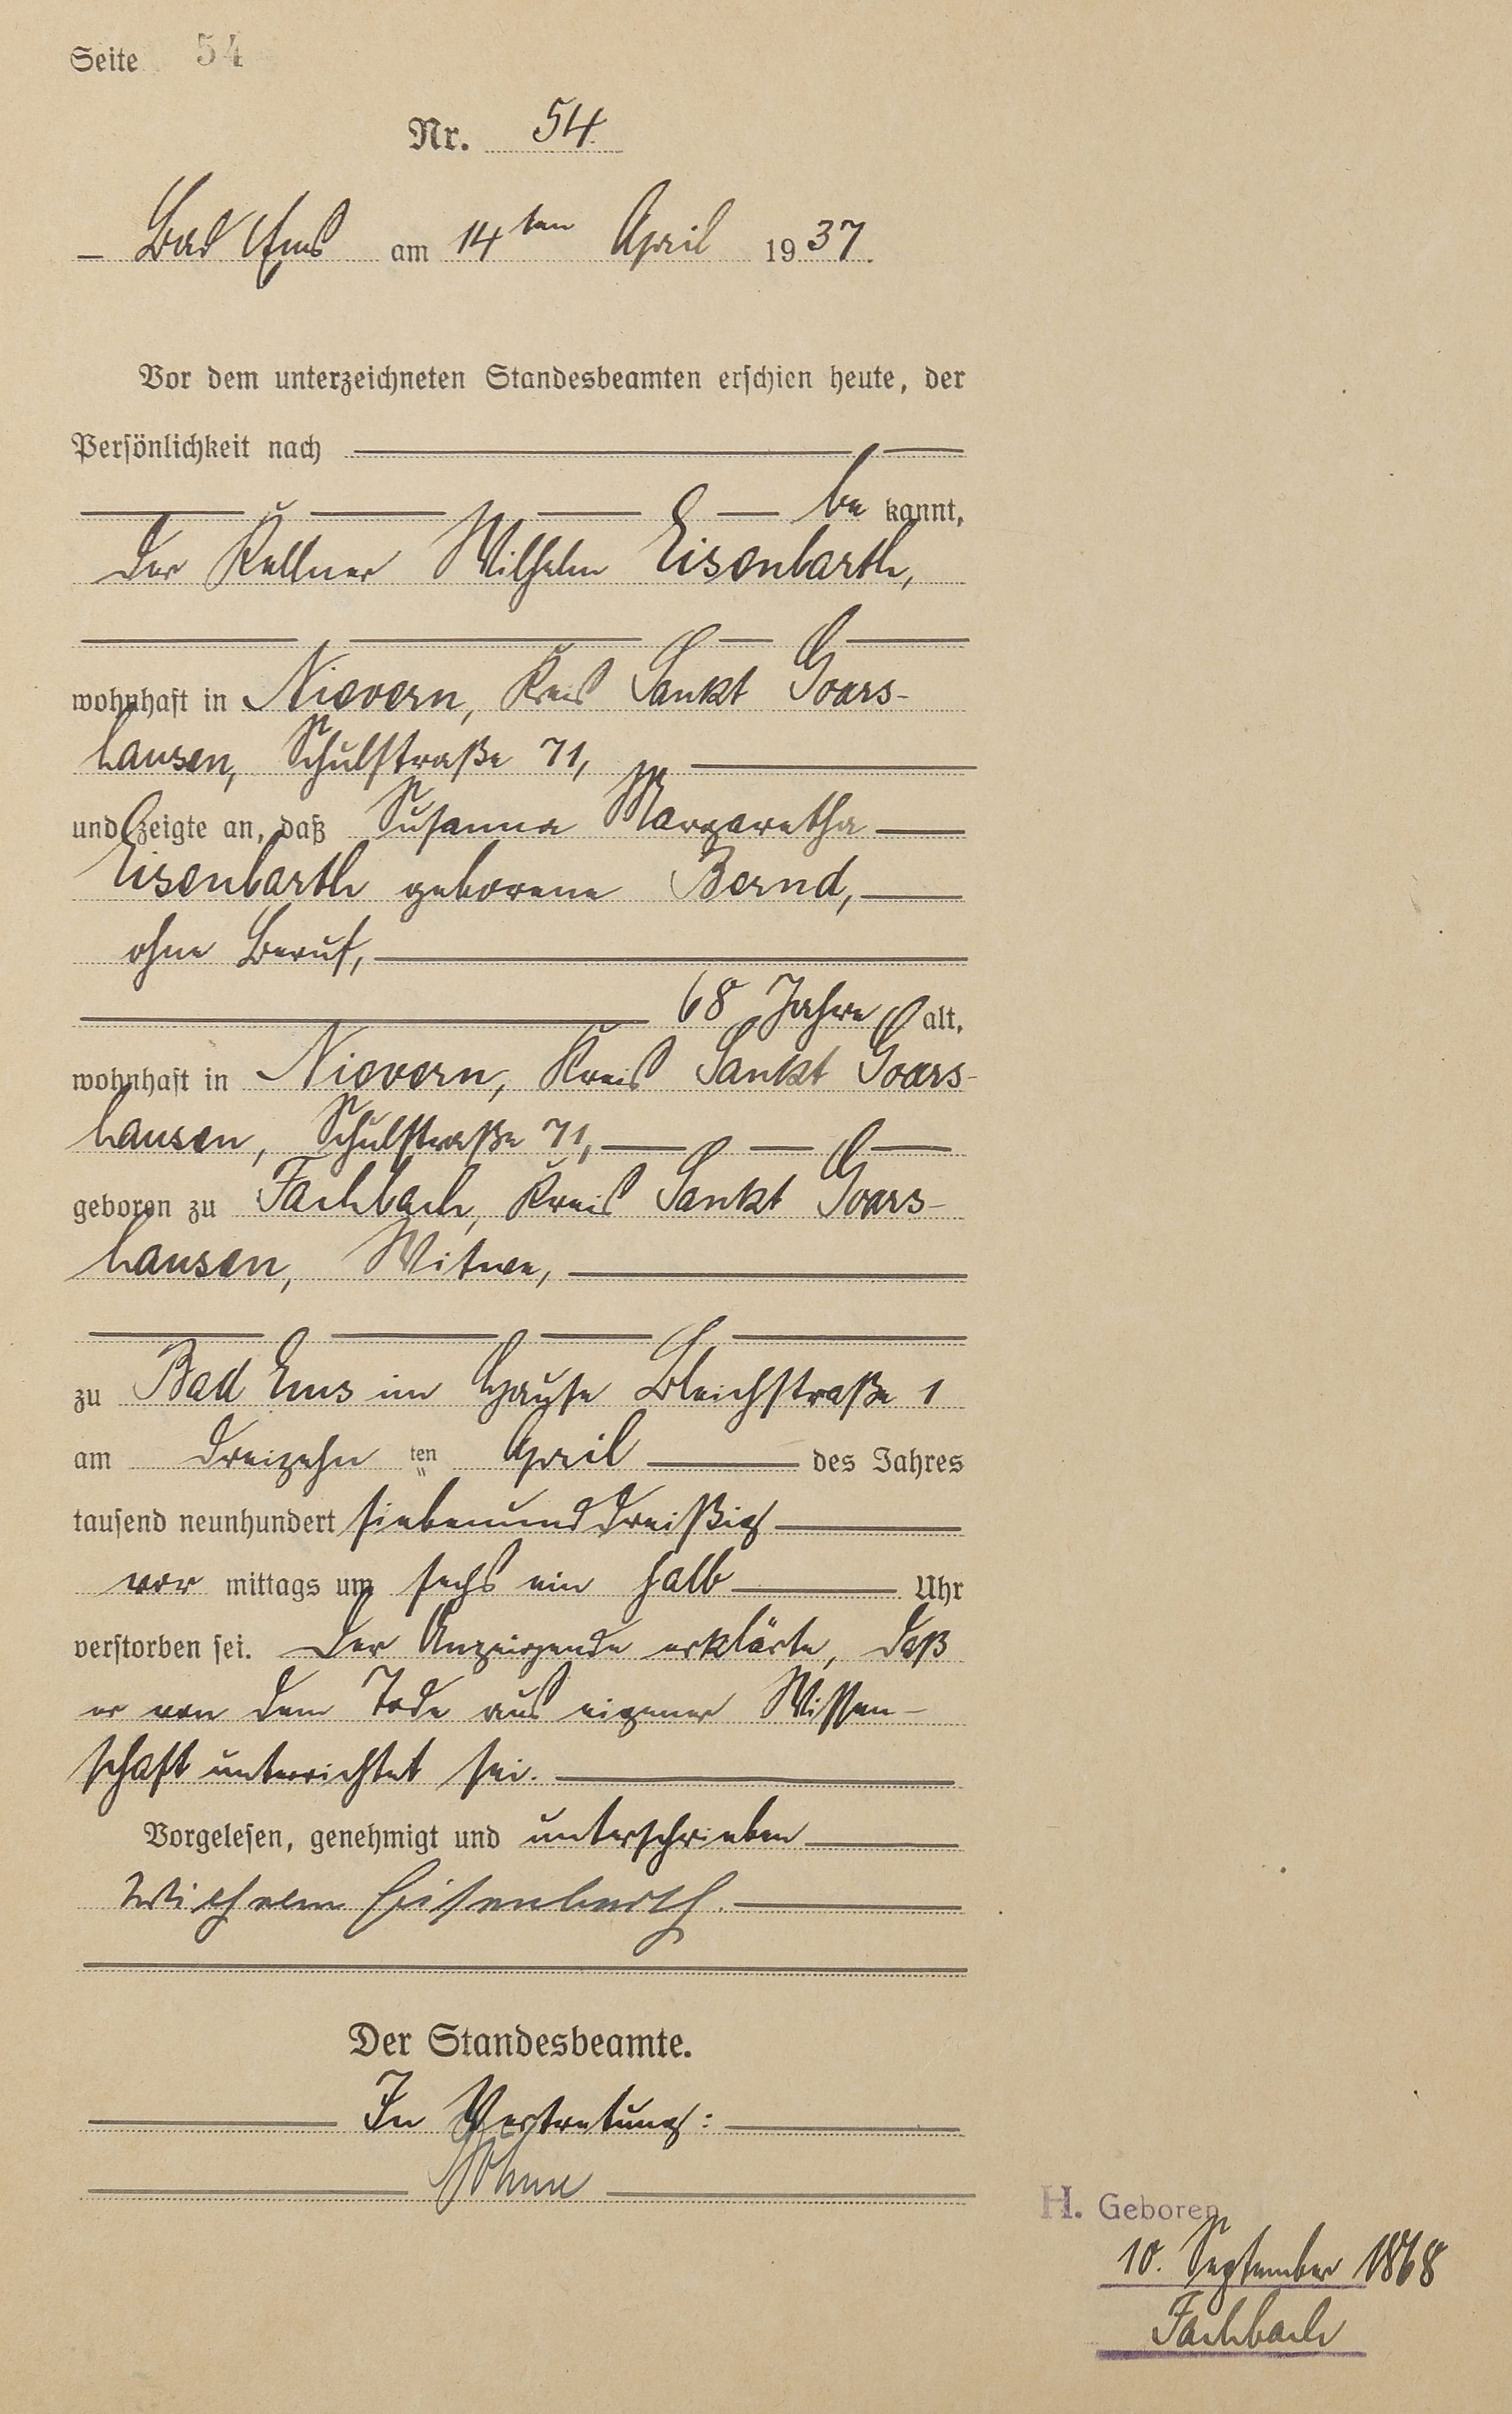 Seite 54
Nr. 54.
Bad Ems am 14ten April 1937.
Vor dem unterzeichneten Standesbeamten erschien heute, der
Persönlichkeit nach
be kannt,
der Kellner Wilhelm Eisenbarth,
wohnhaft in Nievern, Kreis Sankt Goars-
hausen, Schulstraße 71,
und zeigte an, daß Susanna Margaretha
Eisenbarth geborene Bernd,
ohne Beruf,
68 Jahre alt,
wohnhaft in Nievern, Kreis Sankt Goars-
hausen, Schulstraße 71,
geboren zu Fachbach, Kreis Sankt Goars-
hausen, Witwe,
zu Bad Ems im Hause Bleichstraße 1
am dreizehn ten April des Jahres
tausend neunhundert siebenunddreißig
vor mittags um sechs ein halb Uhr
verstorben sei. Der Anzeigende erklärte, daß
er von dem Tode aus eigener Wissen-
schaft unterrichtet sei.
Vorgelesen, genehmigt und unterschrieben
Wilhelm Eisenbarth.
Der Standesbeamte.
In Vertretung:
H. Geboren
10. September 1868
Fachbach